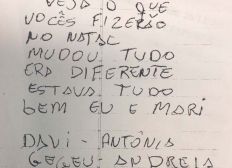 VEJA O QUE
VOCÊS FIZERÃO
NO NATAL
MUDOU TUDO
ERA DIFERENTE
ESTAVA TUDO
BEM EU E MARI
DAVI - ANTÔNIA
GEGEU - ANDREIA